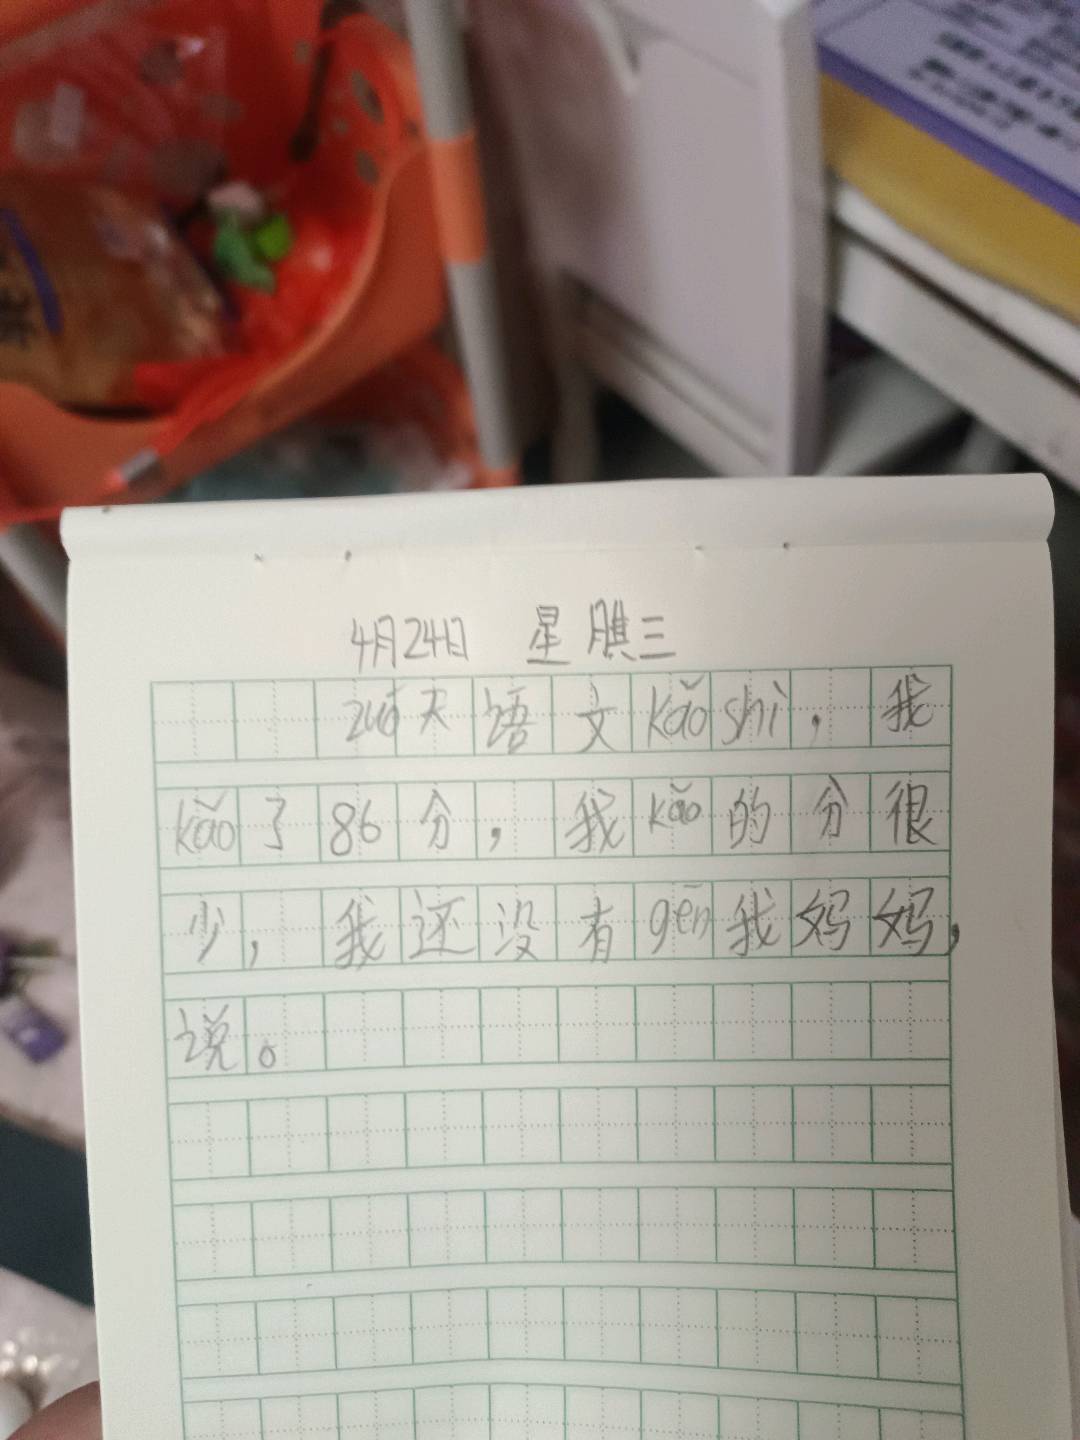 4月24日 星期三
zuó天语文kǎoshì，我
kǎo了86分，我kǎo的分很
少，我还没有gēn我妈妈，
说。